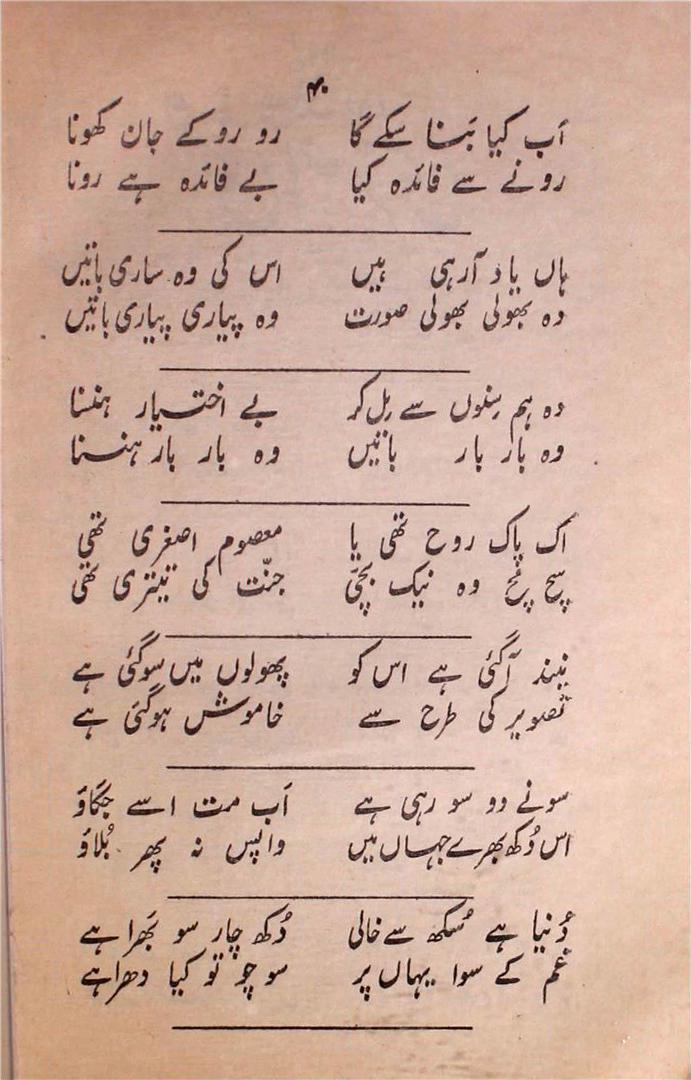 ۴۰
اَب کیا بَنا سکے گا رو رو کے جان کھونا
رونے سے فائدہ کیا بے فائدہ ہے رونا
ہاں یاد آرہی ہیں اس کی وہ ساری باتیں
وہ بھولی بھولی صورت وہ پیاری پیاری باتیں
وہ ہم سِنوں سے مِل کر بے اختیار ہنسنا
وہ بار بار باتیں وہ بار بار ہنسنا
اک پاک روح تھی یا معصوم اصغری تھی
سچ مُچ وہ نیک بچّی جنّت کی تیتری تھی
نیند آگئی ہے اس کو پھولوں میں سوگئی ہے
تصویر کی طرح سے خاموش ہوگئی ہے
سونے دو سو رہی ہے اَب مت اسے جگاوَ
اس دُکھ بھرے جہاں میں واپس نہ پھر بُلاوَ
دُنیا ہے سُکھ سے خالی دُکھ چار سو بَھرا ہے
غم کے سوا یہاں پر سوچو تو کیا دھرا ہے